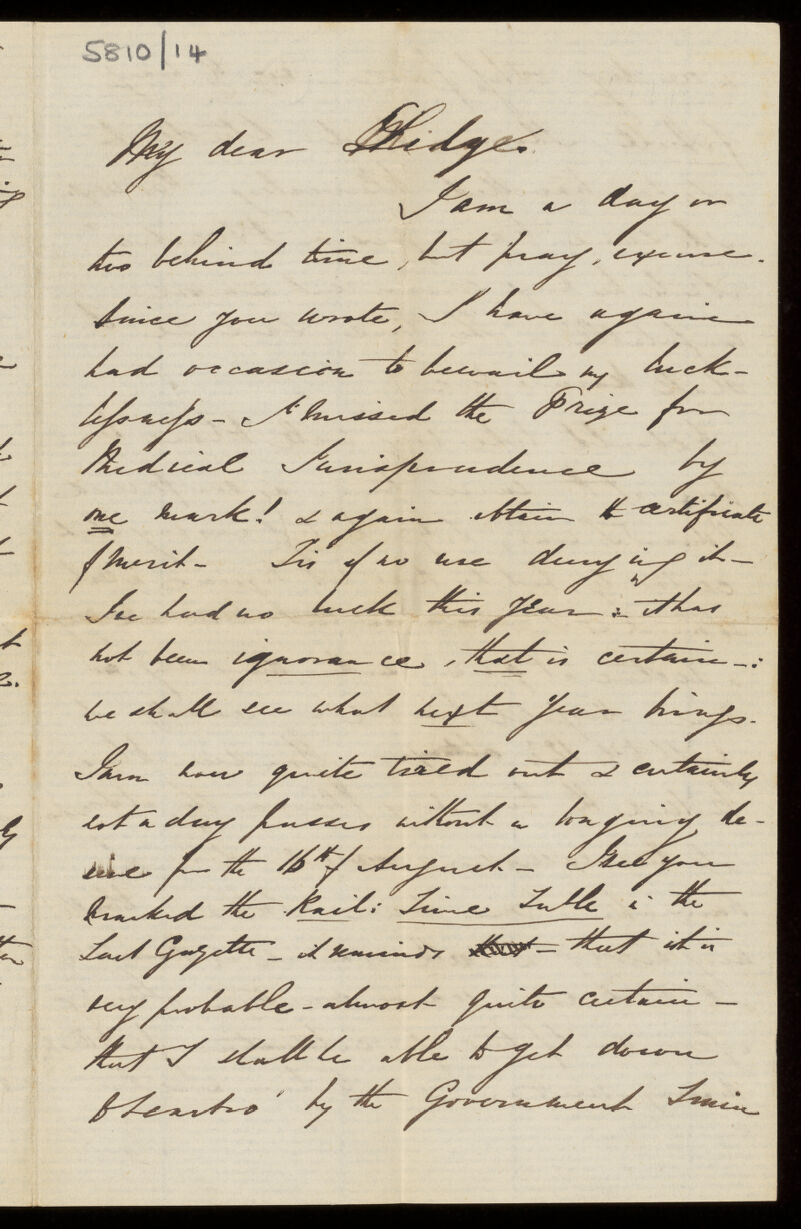 5810/14
My dear Hidge.
I am a day or
two behind time, but pray, excuse.
Since you wrote, I have again
had occasion to bewail my luck-
lessness - I missed the Prize for
Medical Jurisprudence by
one mark! & again obtain the certificate
of Merit - Tis of no use denying it -
I've had no luck this Year: it has
not been ignorance, that is certain -:
we shall see what next Year brings.
I am now quite tired out & certainly
not a day passes without a longing de-
sire for the 16th of August - I see you
marked the Rail: Time Table in the
Last Gazette - it reminds that it is
very probable - almost quite certain -
that I shall be able to get down
by the Government Train